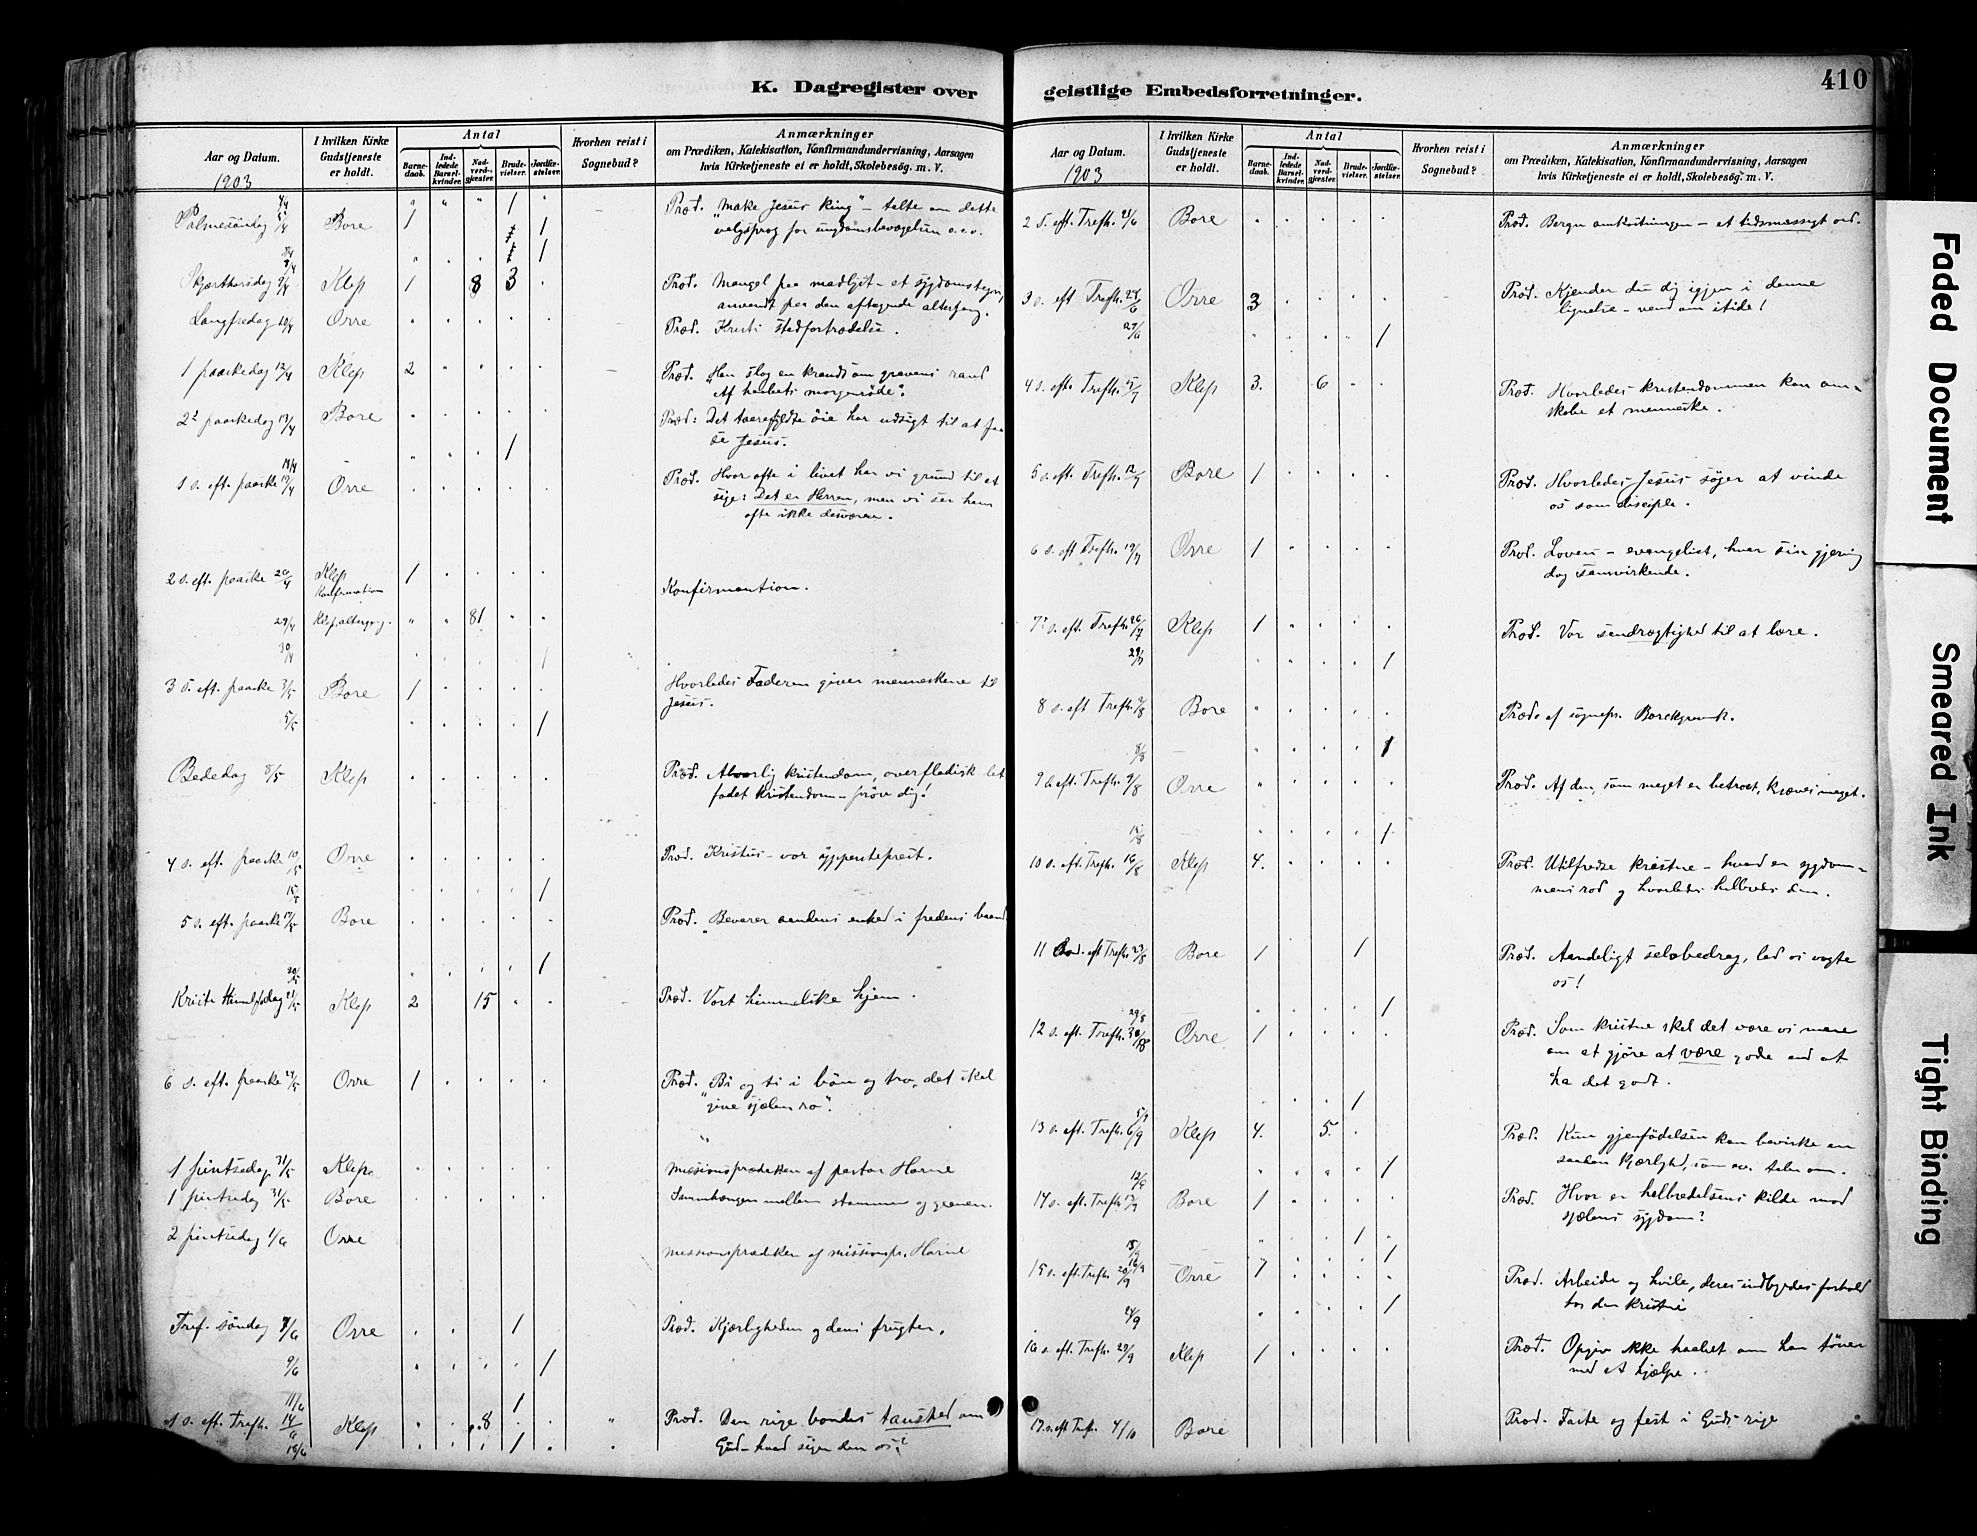 K. Dagregister over
Antal
Aar og Datum.
1903
I hvilken Kirke Gudstjeneste er holdt.
Barnedaab.
Indledede Barselkvinder.
Nadverdgjæster.
Brudevielser.
Jordfæstelser.
Hvorhen reist i Sognebud?
Anmærkninger
om Prædiken, Katekisation, Konfirmandundervisning, Aarsagen
hvis Kirketjeneste ei er holdt, Skolebesög. m. V.
4/4 " " " 1 "
Palmesöndag 5/4 Bore 1 1 Præd. "Make Jesus King" – talte om dette
valgsprog for ungdomsbevægelsen o.s.v.
Skjærthorsdag 9/4 Klep 1 8 3 Præd. Mangel paa madlyst – et sygdomstegn,
anvendt paa den aftagende altergang.
Langfredag 10/4 Orre Præd. Kristi stedfortrædelse.
1 paaskedag 12/4 Klep 2 Præd. "Han slog en krands om gravens rand
Af haabets morgenröde".
2 paaskedag 13/4 Bore Præd: Det taarefyldte öie har udsigt til at faa
se Jesus.
14/4 1
1 s. eft. paaske 19/4 Orre Præd. Hvor ofte i livet har vi grund til at
sige: Det er Herren, men vi ser ham
ofte ikke desværre.
2 s. eft. paaske 26/4 Klep Konfirmation 1 Konfirmantion.
29/4 Klep, altergang. " " 81 " "
30/4 1
3 s. eft. paaske 3/5 Bore 1 Hvorledes Faderen giver menneskene til
Jesus.
5/5 1
Bededag 8/5 Klep Præd. Alvorlig kristendom, overfladisk let
fadet kristendom – pröve dig!
4 s. eft. paaske 10/5 Orre Præd. Kristus – vor ypperstepræst.
15/5 1
5 s. eft. paaske 17/5 Bore Præd. "Bevarer aandens enhed i fredens baand
20/5 1
Kristi Himmelfsdag 21/5 Klep 2 15 Præd. Vort himmelske hjem.
6 s. eft. paaske 24/5 Orre 1 Præd. Bi og ti i bön og tro, det skal
"give sjælen ro".
1 pintsedag 31/5 Klep. Missionsprædiken af pastor Horne
1 pintsedag 31/5 Bore Sammhængen mellem stammen og grenen.
2 pintsedag 1/6 Orre Missionsprædiken af missionspr. Horne
Tref. söndag 7/6 Orre 1 Præd. Kjærligheden og dens frugter.
9/6 1
11/6 1
1 s. eft. Trefh. 14/6 Klep 8 Præd. Den rige bondes taushed om
Gud – hvad siger den os?
18/6 1
geistlige Embedsforretninger.
410
Antal
Aar og Datum.
1903
I hvilken Kirke Gudstjeneste er holdt.
Barnedaab.
Indledede Barselkvinder.
Nadverdgjæster.
Brudevielser.
Jordfæstelser.
Hvorhen reist i Sognebud?
Anmærkninger
om Prædiken, Katekisation, Konfirmandundervisning, Aarsagen
hvis Kirketjeneste ei er holdt, Skolebesög. m. V.
2 S. eft. Trefh. 21/6 Bore Præd. – et tidsmæssigt ord.
3 s. eft Trefh. 28/6 Orre 3 Præd. Kjender du dig igjen i denne
lignelse – vend om itide!
29/6 1
4 s. eft. Trefh. 5/7 Klep 3. 6 Præd. Hvorledes kristendommen kan om-
skabe et menneske.
5 s. eft. Trefh. 12/7 Bore 1 Præd. Hvorledes Jesus söger at vinde
os som disciple.
6 s. eft Trefh. 19/7 Orre 1 Præd. Loven – evangeliet, hver sin gjerning
dog samvirkende.
7 s. eft. Trefh. 26/7 Klep 1 Præd. Vor sendrægtighed til at lære.
29/7 1
8 s. eft Trefh. 2/8 Bore Præd. af sognepr. Borchgrevink.
8/8 1
9 s. eft. Trefh. 9/8 Orre Præd. Af den, som meget er betroet, kræves meget.
15/8 1
10 s. eft. Trefh. 16/8 Klep 4. Præd. Utilfredse kristne – hvad er sygdom-
mens rod og hvorledes helbredes den.
11 s. eft Trefh. 23/8 Bore 1 1 Præd. Aandeligt selvbedrag, lad os vogte
os!
29/8 1
12 s. eft. Trefh. 30/8 Orre 1 Præd. Som kristne skal det være os mere
om at gjöre at være gode end at
ha det godt.
5/9 1
13 s. eft. Trefh. 6/9 Klep 4. 5. Præd. Kun gjenfödelsen kan bevirke en
saadan kjærlighed, som ev. taler om.
12/9 1
14 s. eft. Trefh. 13/9 Bore 1 Præd. Hvor er helbredelsens kilde mod
sjælens sygdom?
15/9 1
16/9 1
15 s. eft. Trefh. 20/9 Orre 1 Præd. Arbeide og hvile, deres indbyrdes forhold
hos den kristne
24/9 1
16 s. eft. Trefh. 27/9 Klep 1 Præd. Opgiv ikke haabet om han töver
med at hjælpe.
17. s. eft Trefh. 4/10 Bore Præd. Faste og fest i Guds rige
Faded Document
Smeared Ink
Tight Binding